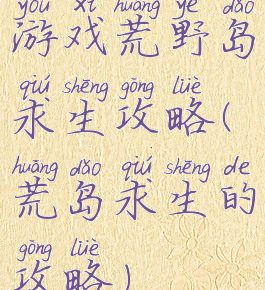 yóu xì huāng yě dǎo
游戏荒野岛
qiú shēng gōng lüè
求生攻略(
huāng dǎo qiú shēng de
荒岛求生的
gōng lüè
攻略)